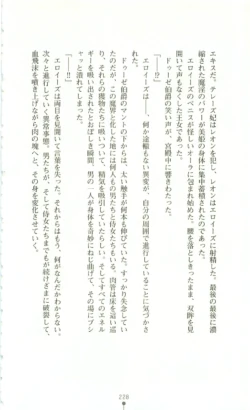 エキスだ。テレーズ妃はレオンを犯し、レオンはエロイーズに射精した。最後の最後に濃
縮された淫魔のパワーが美姫の身体に集中蓄積されたのであった。
エロイーズのペニスが怪しいオーラに包まれ始めた。腰を落としきったまま、双眸を見
開いて声もなくした王女であった。
ドゥーゼ伯爵の笑いが、宮殿中に響きわたった。
「――!?」
エロイーズは――何か途轍もない異変が、自分の周囲で進行していることに気づかさ
れた。
ドゥーゼ伯爵のマントの下からは、太い触手が何本も伸びていた。すっかり失念してい
たものだが、魔界と化した地には何人もの男たち、侍女たちもいた。肉管は床を這い巡
り、それらの獲物たちに吸いついて、精気を吸引していたらしい。そしてすべてのエネル
ギーを吸い出されたとおぼしき瞬間、男の一人が身体を奇妙にねじ曲げて、その場にブシ
「――!!」
エロイーズは両目を見開いて言葉を失った。それからはもう、何がなんだかわからない。
次々と進行していく異常事態。男たちが、そして侍女たちまでもが続けざまに破裂して、
血飛沫を噴き上げながら肉の塊へと、その身を変化させていく。
238